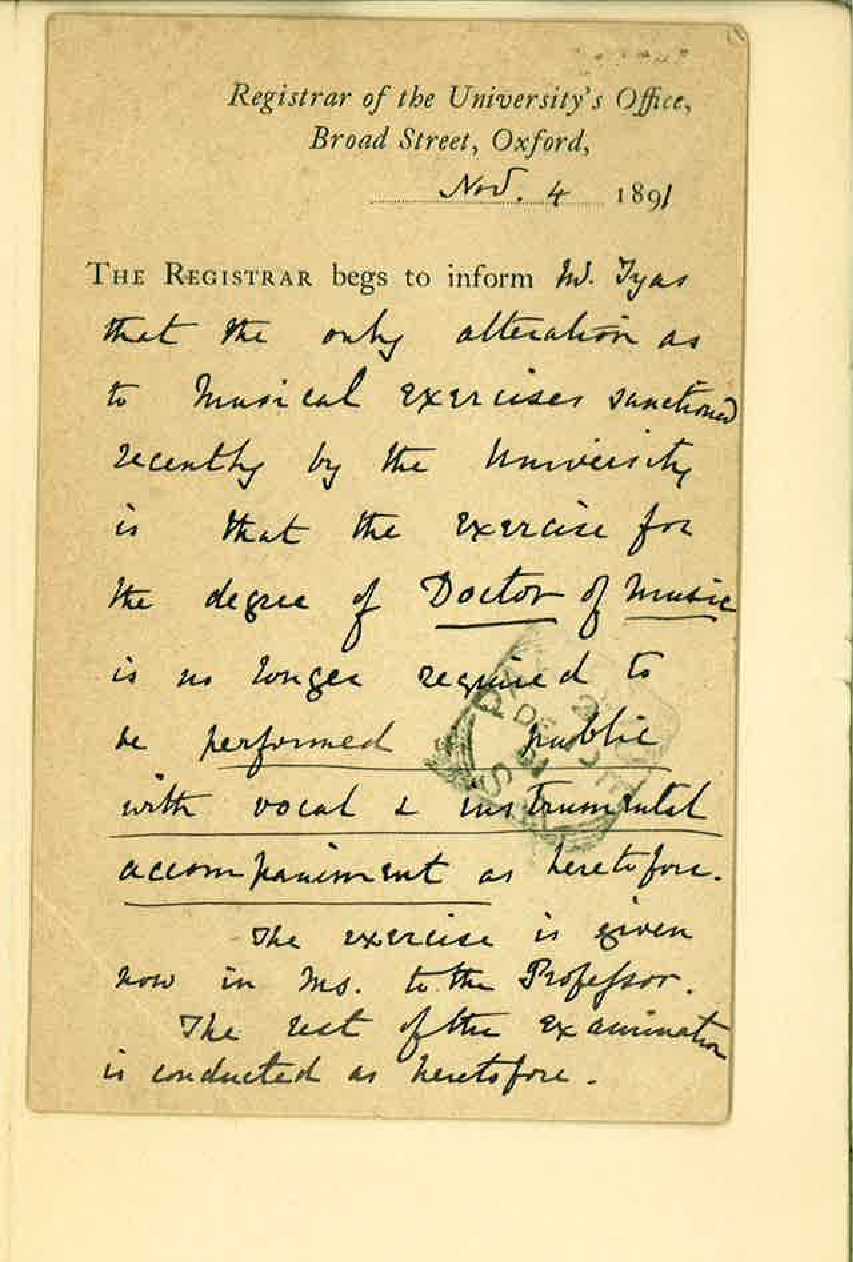 Registrar of the University's Office,
Broad Street, Oxford,
Nov. 4 1891
THE REGISTRAR begs to inform Mr. Tyas
that the only alteration as
to Musical exercises sanctioned
recently by the University
is that the exercise for
the degree of Doctor of Music
is no longer required to
be performed public
with vocal & instrumental
accompaniment as heretofore.
The exercise is given
now in Ms. to the Professor.
The rest of the examination
is conducted as heretofore.